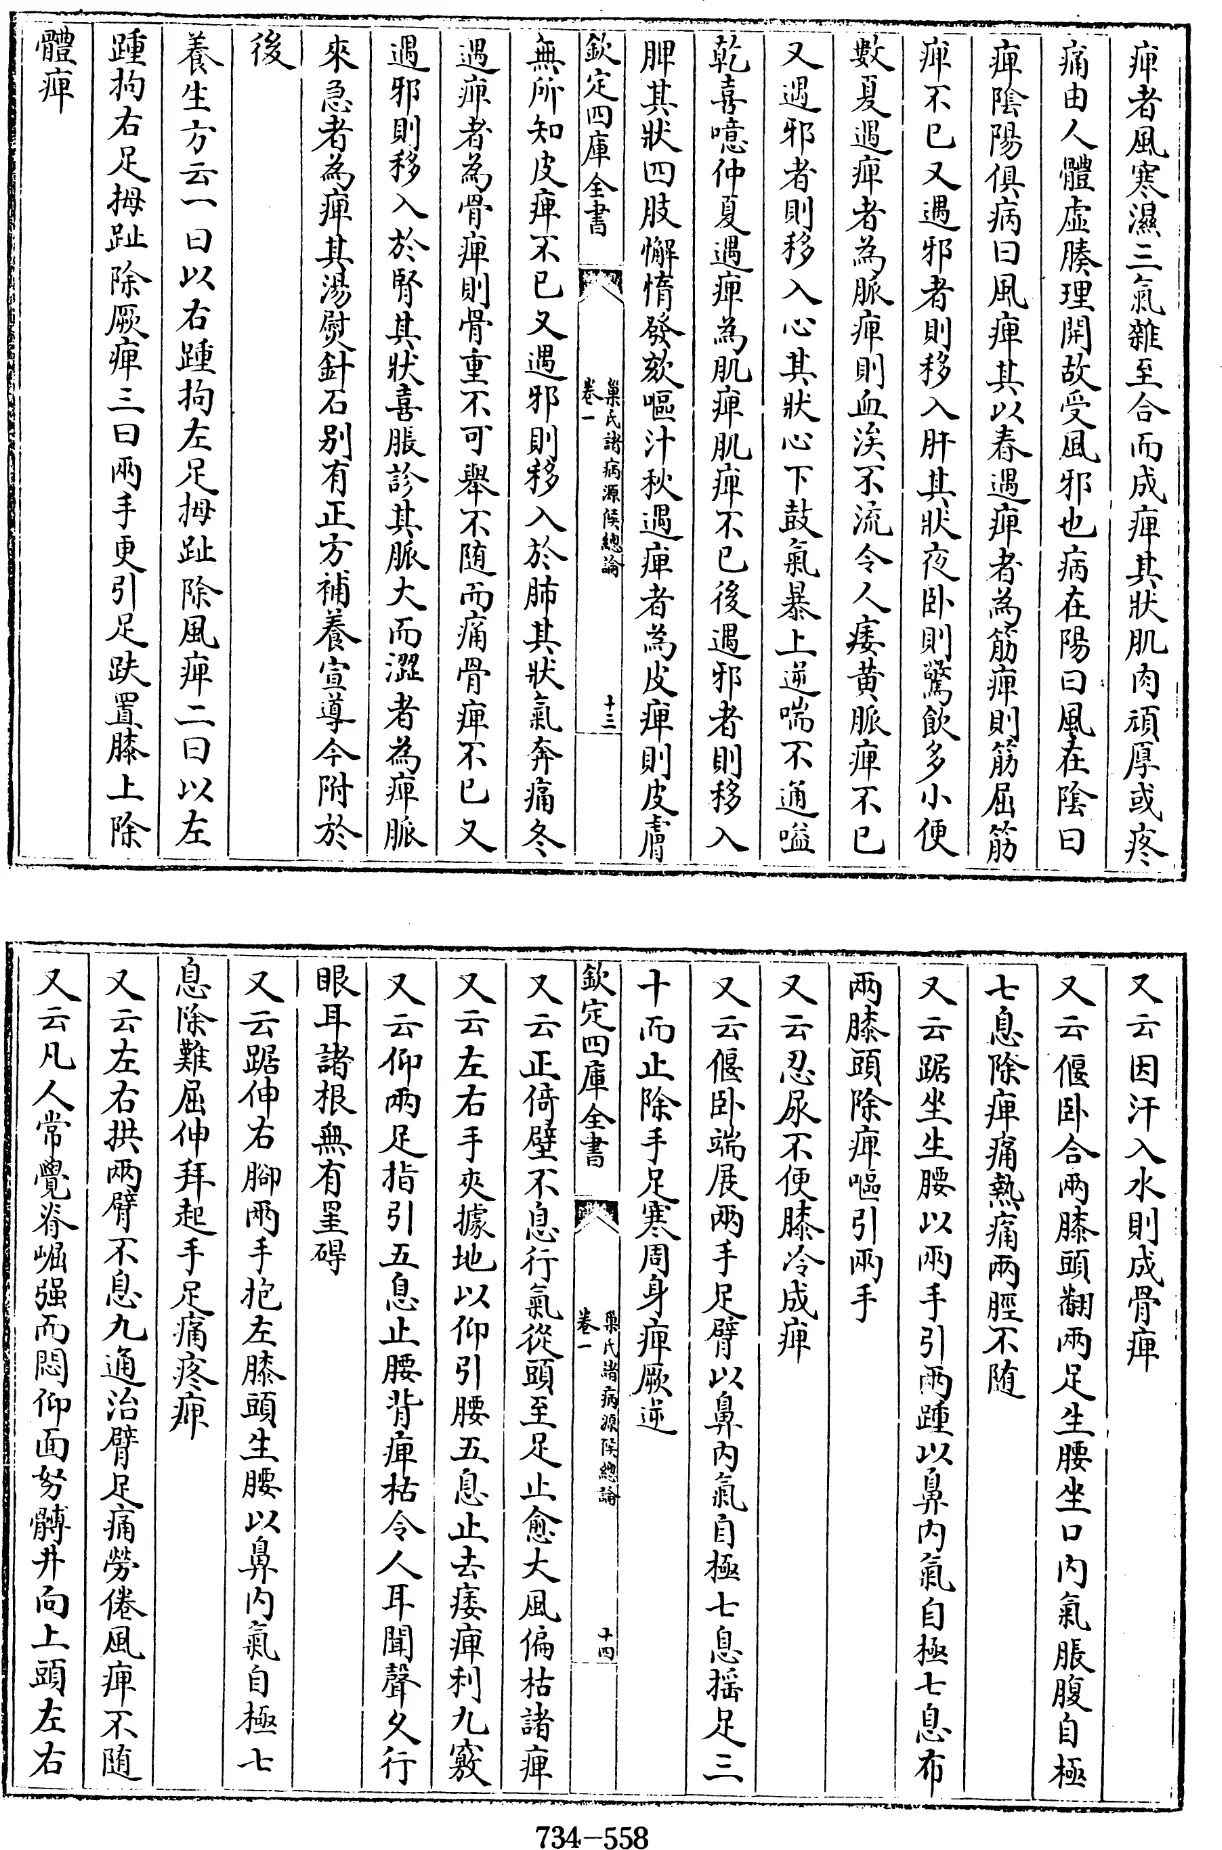 痺者風寒濕三氣雜至合而成痺其狀肌肉頑厚或疼
痛由人體虛腠理開故受風邪也病在陽曰風在陰曰
痺陰陽俱病曰風痺其以春遇痺者為筋痺則筋屈筋
痺不已又遇邪者則移入肝其狀夜卧則驚飲多小便
數夏遇痺者為脈痺則血淡不流令人痿黄脈痺不已
又遇邪者則移入心其狀心下鼓氣暴上逆喘不通嗌
乾喜噫仲夏遇痺為肌痺肌痺不已後遇邪者則移入
脾其狀四肢懈惰發欬嘔汁秋遇痺者為皮痺則皮膚
欽定四庫全書
巢氏諸病源候總論
卷一
十三
無所知皮痺不已又遇邪則移入於肺其狀氣奔痛冬
遇痺者為骨痺則骨重不可舉不随而痛骨痺不已又
遇邪則移入於腎其狀喜脹診其脈大而澀者為痺脈
來急者為痺其湯熨針石别有正方補養宣導今附於
後
養生方云一曰以右踵拘左足拇趾除風痺二曰以左
踵拘右足拇趾除厥痺三曰兩手更引足趺置膝上除
體痺
又云因汗入水則成骨痺
又云偃卧合兩膝頭翻兩足生腰坐口内氣脹腹自極
七息除痺痛熱痛兩脛不随
又云踞坐生腰以兩手引兩踵以鼻内氣自極七息布
兩膝頭除痺嘔引兩手
又云忍尿不便膝冷成痺
又云偃卧端展兩手足臂以鼻内氣自極七息揺足三
十而止除手足寒周身痺厥逆
欽定四庫全書
巢氏諸病源候總論
卷一
十四
又云正倚壁不息行氣從頭至足止愈大風偏枯諸痺
又云左右手夾據地以仰引腰五息止去痿痺利九竅
又云仰兩足指引五息止腰背痺枯令人耳聞聲久行
眼耳諸根無有罣碍
又云踞伸右腳兩手抱左膝頭生腰以鼻内氣自極七
息除難屈伸拜起手足痛疼痺
又云左右拱兩臂不息九通治臂足痛勞倦風痺不随
又云凡人常覺脊崛强而悶仰面努髆井向上頭左右
734-558